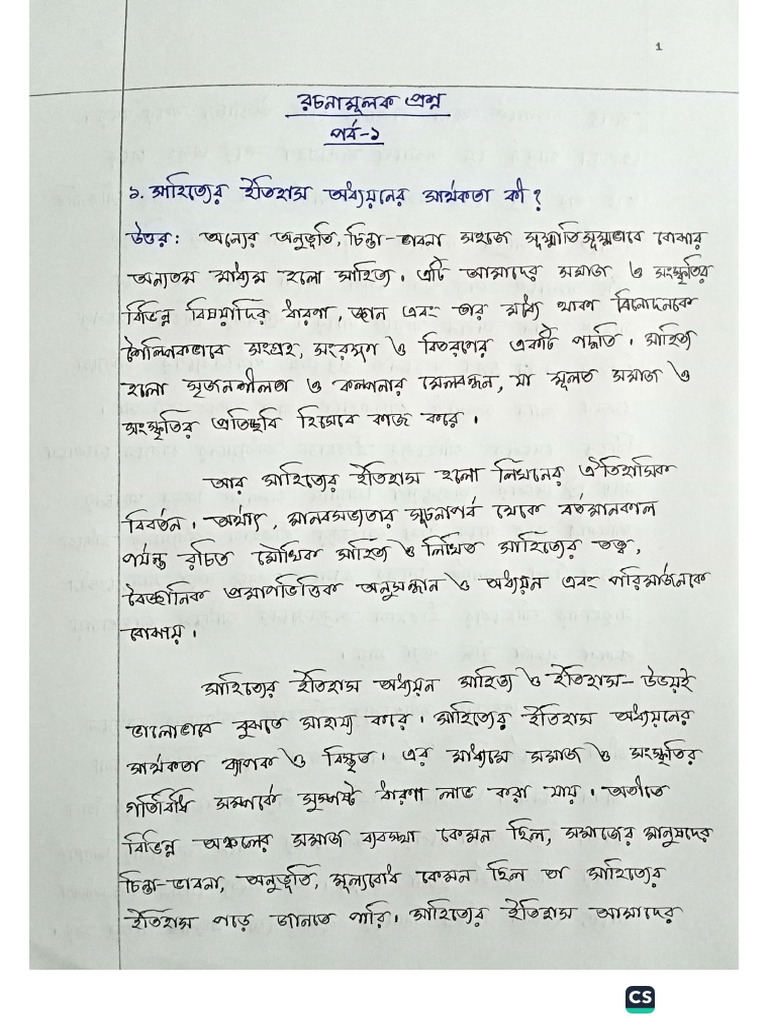 1
রচনামূলক প্রশ্ন
পর্ব-১
১. সাহিত্যের ইতিহাস অধ্যয়নের সার্থকতা কী?
উত্তর: অন্যের অনুভূতি, চিন্তা-ভাবনা সহজে সূক্ষ্মাতিসূক্ষ্মভাবে বোঝার
অন্যতম মাধ্যম হলো সাহিত্য। এটি আমাদের সমাজ ও সংস্কৃতির
বিভিন্ন বিষয়াদির ধারণা, জ্ঞান এবং তার মধ্যে থাকা বিনোদনকে
শৈল্পিকভাবে সংগ্রহ, সংরক্ষণ ও বিতরণের একটি পদ্ধতি। সাহিত্য
হলো সৃজনশীলতা ও কল্পনার মেলবন্ধন, যা মূলত সমাজ ও
সংস্কৃতির প্রতিচ্ছবি হিসেবে কাজ করে।
আর সাহিত্যের ইতিহাস হলো লিখনের ঐতিহাসিক
বিবর্তন। অর্থাৎ, মানবসভ্যতার সূচনাপর্ব থেকে বর্তমানকাল
পর্যন্ত রচিত মৌখিক সাহিত্য ও লিখিত সাহিত্যের তত্ত্ব,
বৈজ্ঞানিক প্রমাণভিত্তিক অনুসন্ধান ও অধ্যয়ন এবং পরিমার্জনকে
বোঝায়।
সাহিত্যের ইতিহাস অধ্যয়ন সাহিত্য ও ইতিহাস- উভয়ই
ভালোভাবে বুঝতে সাহায্য করে। সাহিত্যের ইতিহাস অধ্যয়নের
সার্থকতা ব্যাপক ও বিস্তৃত। এর মাধ্যমে সমাজ ও সংস্কৃতির
গতিবিধি সম্পর্কে সুস্পষ্ট ধারণা লাভ করা যায়। অতীতে
বিভিন্ন অঞ্চলের সমাজ ব্যবস্থা কেমন ছিল, সমাজের মানুষদের
চিন্তা-ভাবনা, অনুভূতি, মূল্যবোধ কেমন ছিল তা সাহিত্যের
ইতিহাস পড়ে জানতে পারি। সাহিত্যের ইতিহাস আমাদের
CS